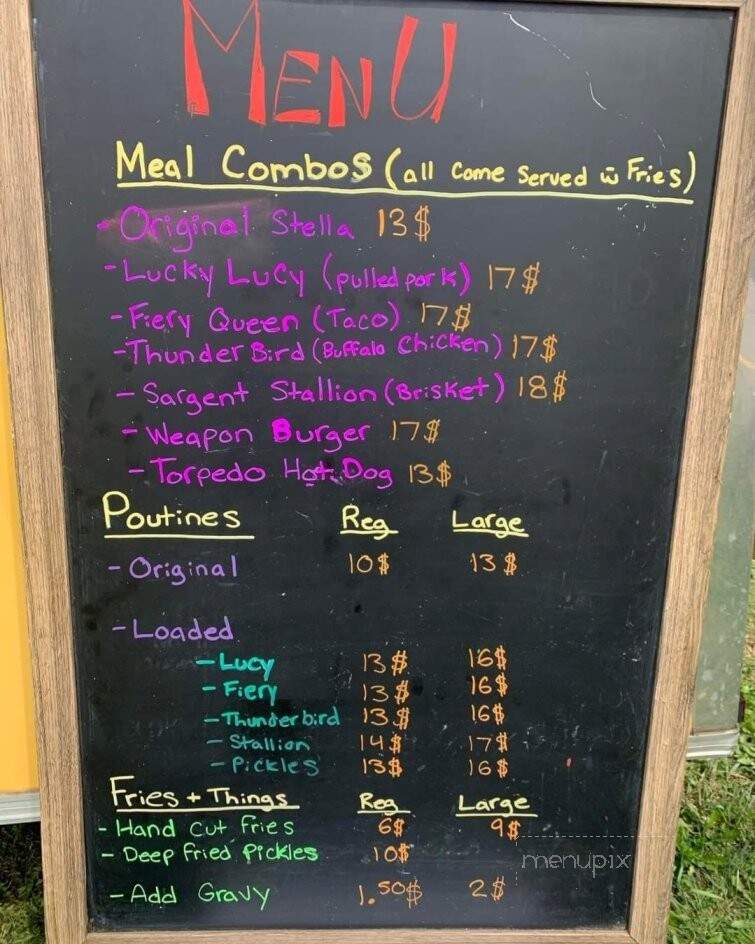 MENU
Meal Combos (all come served w Fries)
- Original Stella 13$
- Lucky Lucy (pulled pork) 17$
- Fiery Queen (Taco) 17$
- Thunder Bird (Buffalo Chicken) 17$
- Sargent Stallion (Brisket) 18$
- Weapon Burger 17$
- Torpedo Hot Dog 13$
Poutines Reg Large
- Original 10$ 13$
- Loaded
- Lucy 13$ 16$
- Fiery 13$ 16$
- Thunderbird 13$ 16$
- Stallion 14$ 17$
- Pickles 13$ 16$
Fries + Things Reg Large
- Hand Cut Fries 6$ 9$
- Deep Fried Pickles 10$
menupix
- Add Gravy 1.50$ 2$